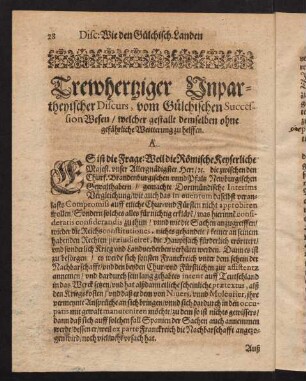 28 Disc: Wie den Gülchisch Landen
Trewhertziger Vnpar-
theyischer Discurs, vom Gülchischen Succes-
sion Wesen / welcher gestalt demselben ohne
gefährliche Weiterung zu helffen.
A.
ES ist die Frage: Weil die Römische Keyserliche
Majest. vnser Allergnädigster Herr / ꝛc. die zwischen den
Churf. Brandenburgischen vnnd Pfaltz Newburgischen
Gewalthabern / gemachte Dortmündische Interims
Vergleichung / wie auch das
Compromiß auff etliche Chur vnd Fürsten nicht approbiren
wollen / Sondern solches alles für nichtig erklärt / was hierinn consi-
deratis considerandis zu thun /
wider die Reichs constitutiones, nichts gehandelt / ferner an seinem
habenden Rechten nicht præjudicirt, die
vnd schedlich Krieg vnd Landverderben verhütet werden. Dann es ist
zu besorgen / es werde sich sonsten Franckreich vnter dem schein der
Nachbarschafft vnd den beyden Chur vnd Fürstlichen zur assistentz
annemen / vnd dardurch ein lang gehabten intent auff Teutschland
in das Werck setzen / vnd hat alsdann etliche scheinliche prætextus, als
den Kriegskosten / vnd daß es dem von Nivers, vnnd Molevrier, ihre
vermeynte Ansprüch an sich bringen vnd sich dardurch in den occu-
patis mit gewalt manuteniren möchte / zu dem so ist nichts gewissers /
dann daß sich auff solchen fall Spanien der Sachen auch annemmen
werde dessen er / weil ex parte Franckreich die Nachbarschafft angezo-
gen wird / noch viel wol befugt hat.
Auß